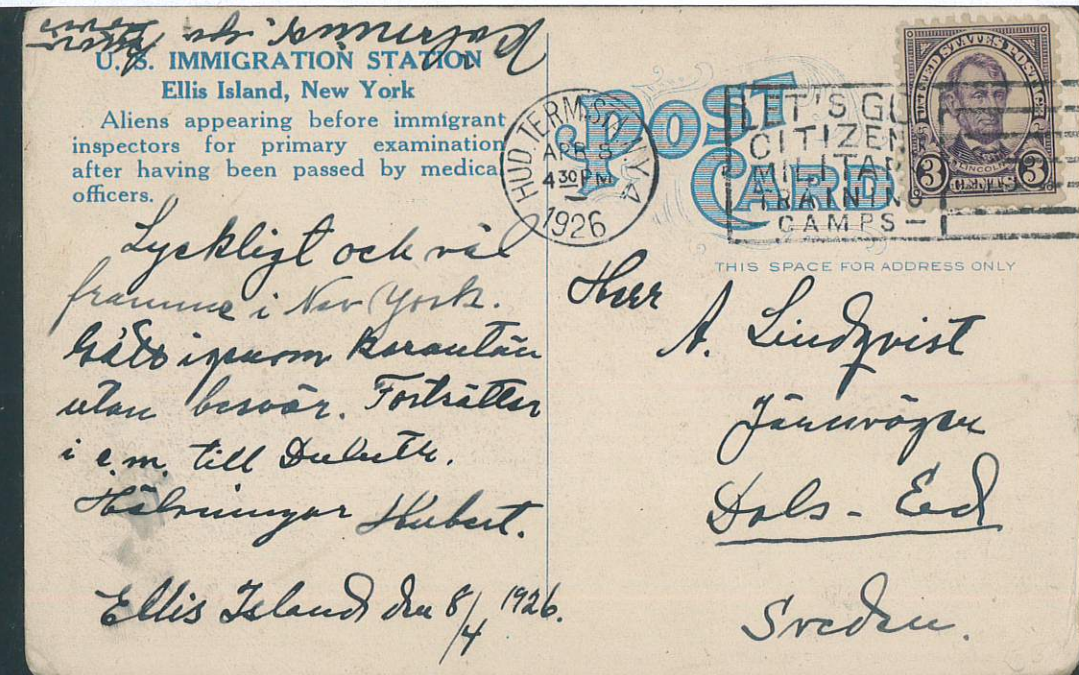 U. S. IMMIGRATION STATION
Ellis Island, New York
Aliens appearing before immigrant
inspectors for primary examination
after having been passed by medical
officers.
Lyckligt och väl
framme i New York.
Gått igenom karantän
utan besvär. Fortsätter
i e.m. till Duluth.
Hälsningar Hubert.
Ellis Island den 8/4 1926.
POST
CARD
THIS SPACE FOR ADDRESS ONLY
HUD. TERM. STA. N.Y. 4
APR 8
4 30 PM
1926
LET'S GO
CITIZEN
MILITARY
TRAINING
CAMPS
UNITED STATES POSTAGE
LINCOLN
3 CENTS 3
Herr
A. Lindqvist
Järnvägen
Dals-Ed
Sveden.